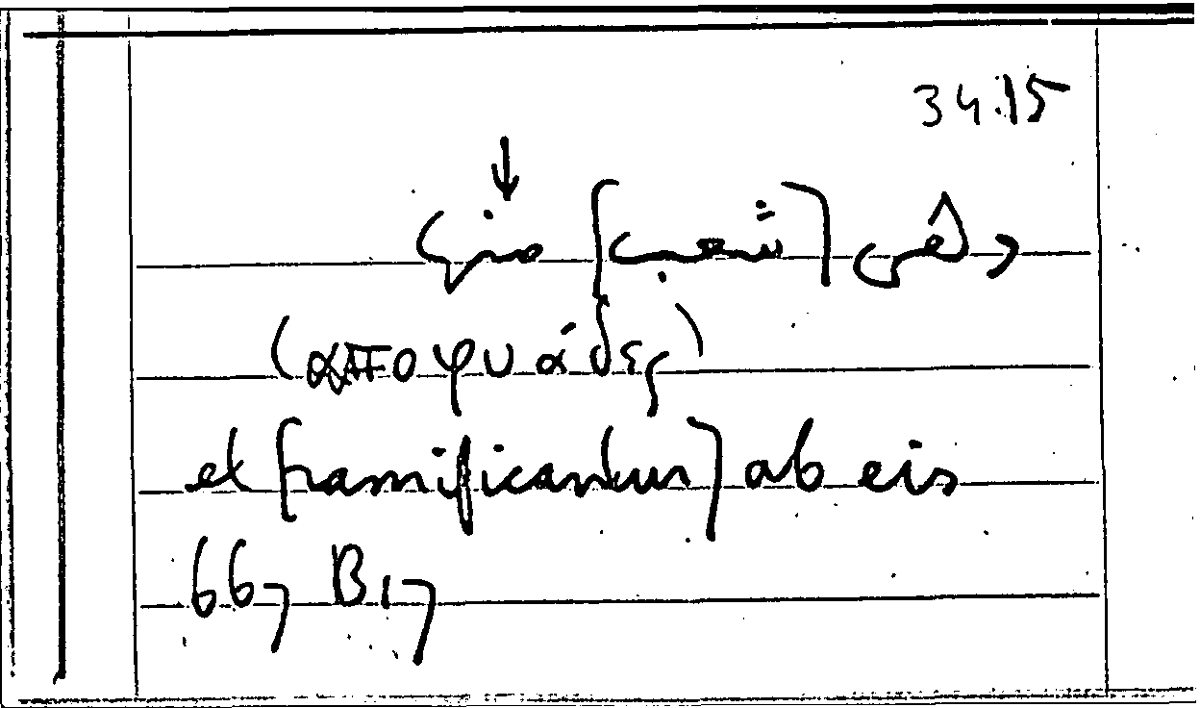 34.15
↓
وهى [شعب] من
(αποφυάδες)
et [ramificantur] ab eis
667 B17